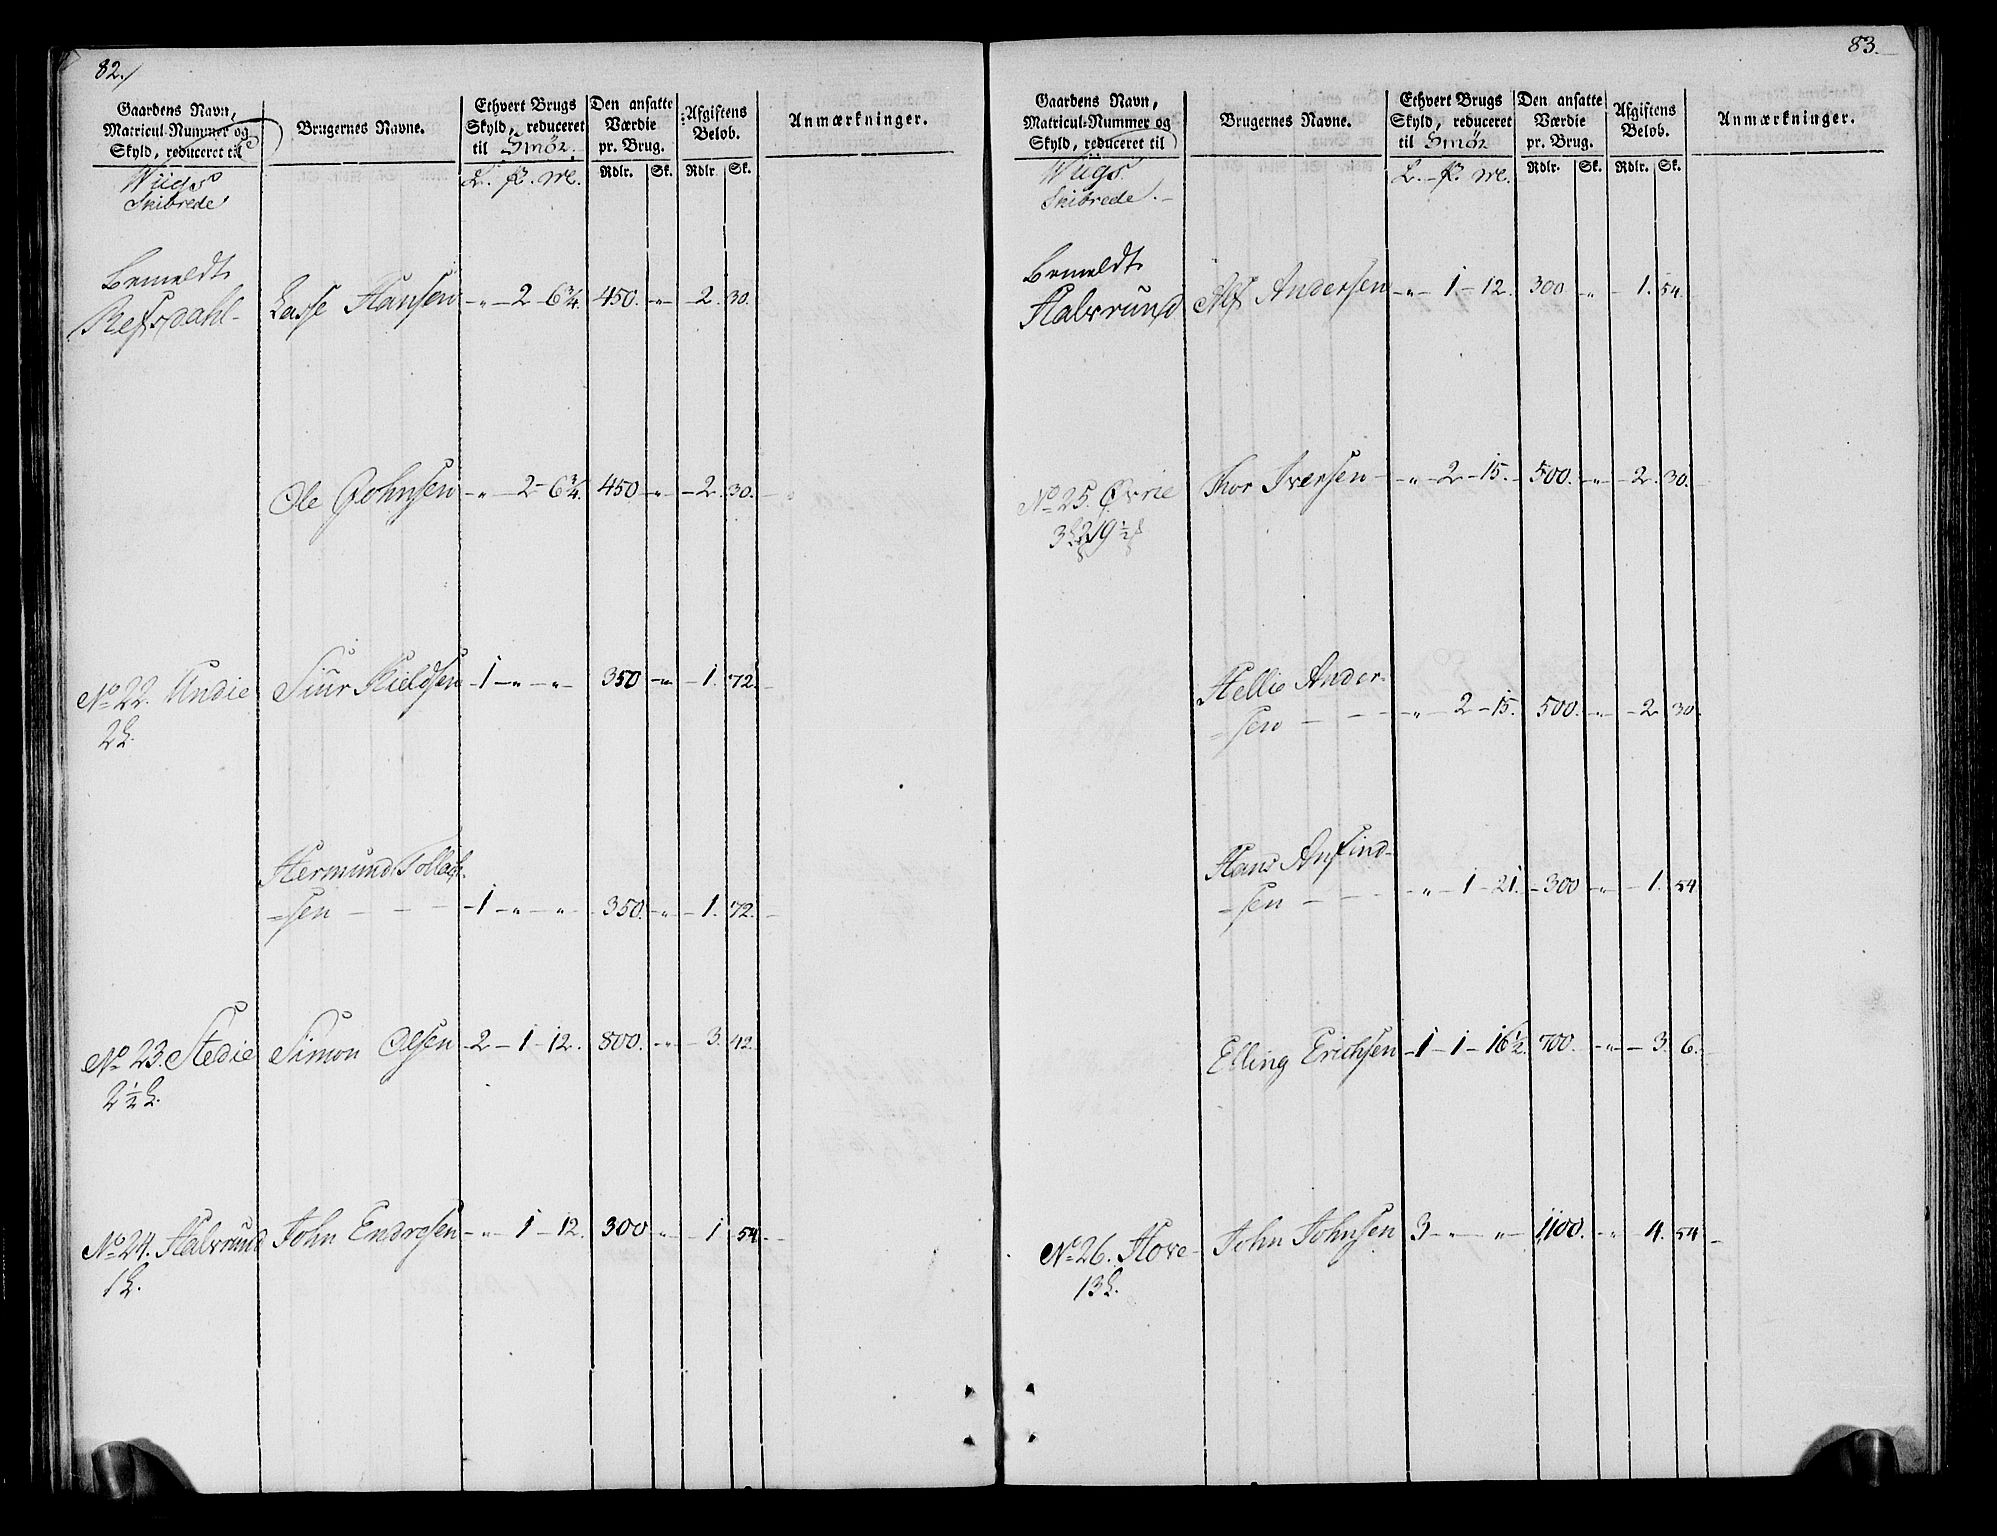 82.
Gaardens Navn, Matricul-Nummer og Skyld, reduceret til | Brugernes Navne. | Ethvert Brugs Skyld, reduceret til Smør. | Den ansatte Værdie pr. Brug. | Afgiftens Beløb. | Anmærkninger.
Wiigs | L. ꝑ. m. | Rdlr. | Sk. | Rdlr. | Sk.
Skibrede
Bemeldt
Refsdahl | Lasse Hansen | " 2 6¾ | 450. | " | 2. | 30.
Ole Johnsen | " 2 6¾ | 450 | " | 2. | 30.
No 22. Undie | Siur Kieldsen | 1 " " | 350 | " | 1. | 72.
2 L.
Hermund Tollef-
=sen | 1 " " | 350. | " | 1. | 72.
No 23. Stedie | Simon Olsen | 2 1 12. | 800. | " | 3. | 42.
2½ L.
No 24. Halvrund | John Endresen | " 1 12. | 300 | " | 1 | 54.
1 L.
83.
Gaardens Navn, Matricul-Nummer og Skyld, reduceret til | Brugernes Navne. | Ethvert Brugs Skyld, reduceret til Smør | Den ansatte Værdie pr. Brug. | Afgiftens Beløb. | Anmærkninger.
Wiigs | L. ꝑ. m. | Rdlr. | Sk. | Rdlr. | Sk.
Skibrede.
Bemeldt
Halvrund | Andersen | " 1 12. | 300 | " | 1. | 54.
No 25. Øvrie | Thor Iversen | " 2 15. | 500. | " | 2. | 30.
Hellie Ander-
=sen | " 2 15. | 500. | " | 2 | 30.
Hans Anfind-
=sen | " 1 21. | 300 | " | 1. | 54
Elling Erichsen | 1 1 16½. | 700. | " | 3. | 6.
No 26. Hove | John Johnsen | 3 " " | 1100. | " | 4. | 54
13 L.